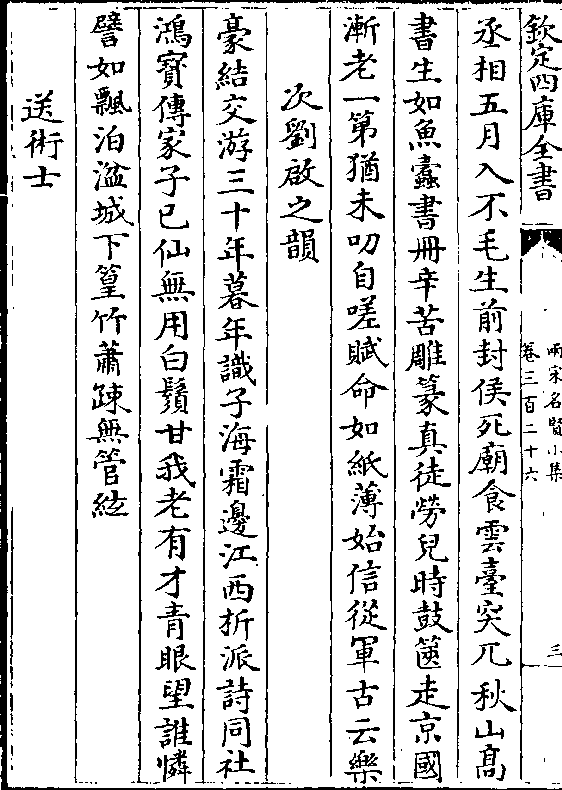 欽定四庫全書
兩宋名賢小集
卷三百二十六
三
丞相五月入不毛生前封侯死廟食雲臺突兀秋山高
書生如魚蠧書冊辛苦雕篆真徒勞兒時鼓篋走京國
漸老一第猶未叨自嗟賦命如紙薄始信從軍古云樂
次劉啟之韻
豪結交游三十年暮年識子海霜邊江西折派詩同社
鴻寳傳家子已仙無用白鬚甘我老有才青眼望誰憐
譬如飄泊湓城下篁竹蕭疎無管絃
送術士